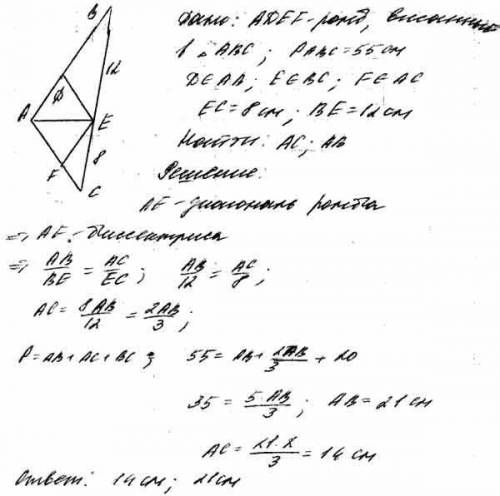 Дано: ADEF - ромб, вписанный
в △ABC; P ABC = 55 см
D∈AB; E∈BC; F∈AC
EC = 8 см; BE = 12 см
Найти: AC; AB
Решение:
AE - диагональ ромба
⇒ AE - биссектриса
⇒ AB/BE = AC/EC; AB/12 = AC/8;
AC = 8AB/12 = 2AB/3;
P = AB + AC + BC; 55 = AB + 2AB/3 + 20
35 = 5·AB/3; AB = 21 см
AC = 21·2/3 = 14 см
Ответ: 14 см; 21 см
B
12
D
A
E
8
F
C